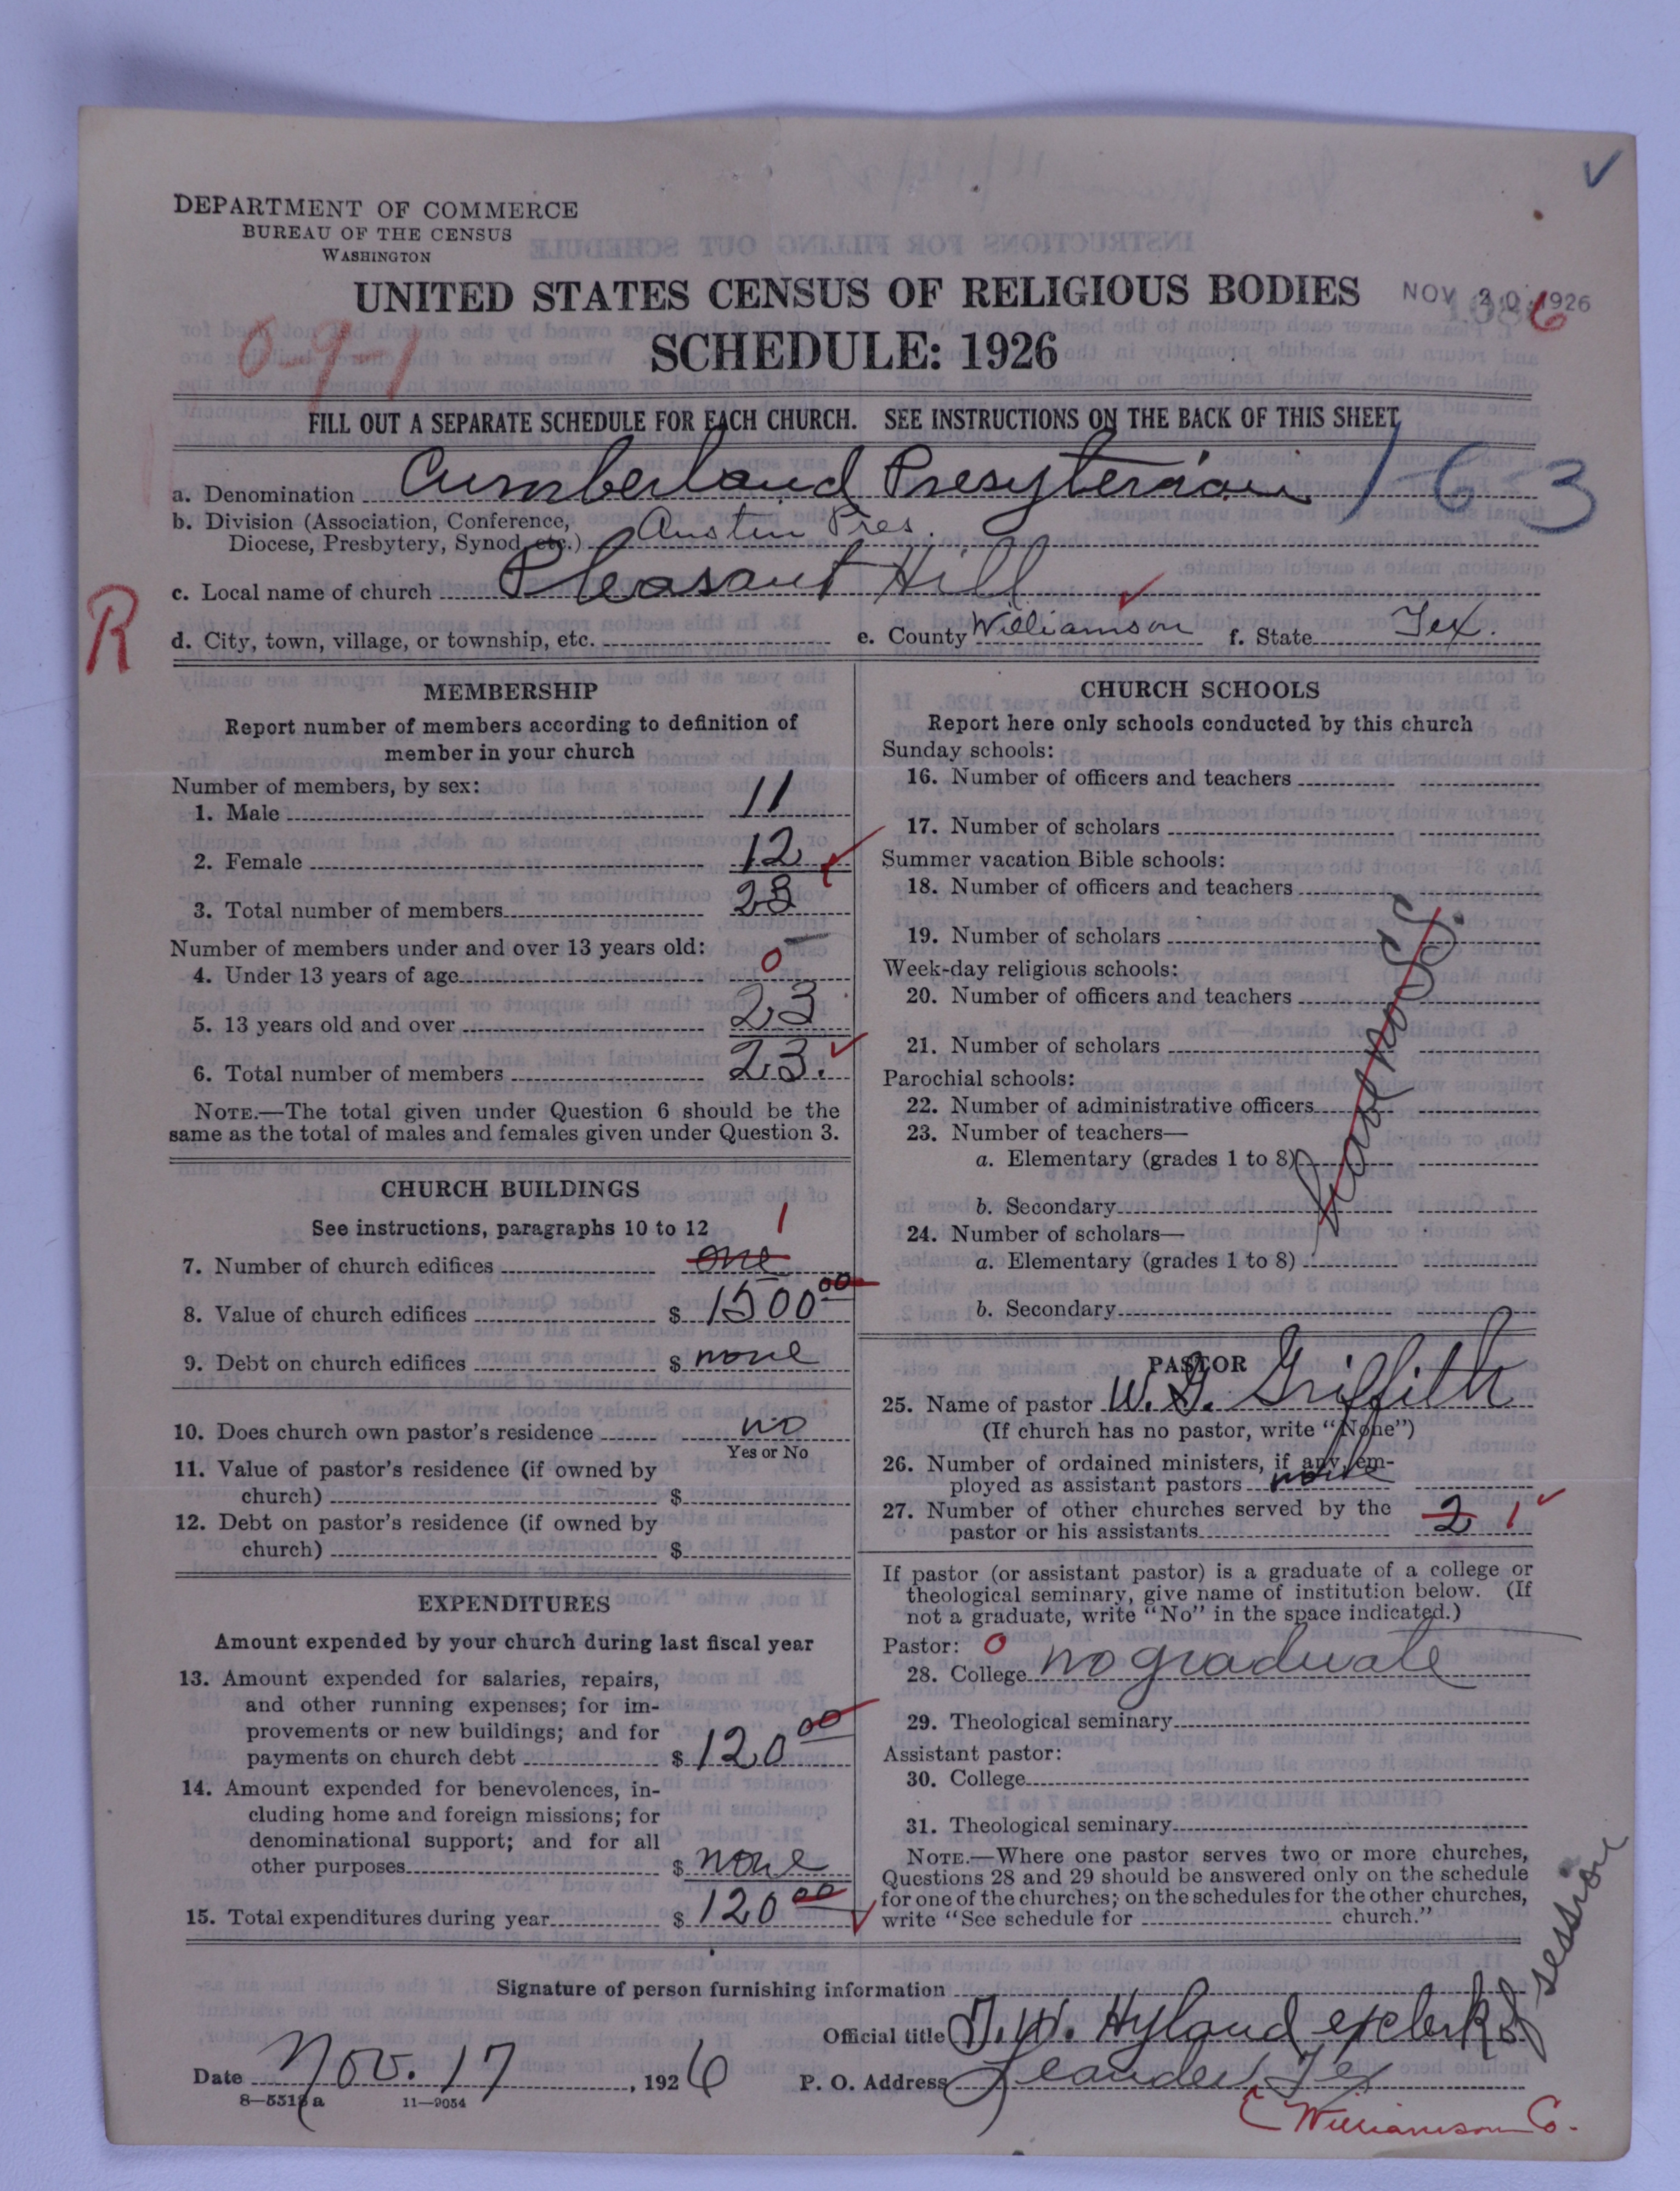 DEPARTMENT OF COMMERCE
BUREAU OF THE CENSUS
WASHINGTON
UNITED STATES CENSUS OF RELIGIOUS BODIES
NOV 20 1926
6
SCHEDULE: 1926
0-9-1
FILL OUT A SEPARATE SCHEDULE FOR EACH CHURCH. SEE INSTRUCTIONS ON THE BACK OF THIS SHEET
a. Denomination Cumberland Presyterian 1-6-3
b. Division (Association, Conference, Diocese, Presbytery, Synod, etc.) Austin Pres.
c. Local name of church Pleasant Hill
R
d. City, town, village, or township, etc. e. County Williamson f. State Tex.
MEMBERSHIP
Report number of members according to definition of
member in your church
Number of members, by sex:
1. Male 11
2. Female 12
3. Total number of members 23
Number of members under and over 13 years old:
4. Under 13 years of age 0
5. 13 years old and over 23
6. Total number of members 23.
NOTE.—The total given under Question 6 should be the
same as the total of males and females given under Question 3.
CHURCH BUILDINGS
See instructions, paragraphs 10 to 12
1
7. Number of church edifices one
8. Value of church edifices $ 1500 00
9. Debt on church edifices $ none
10. Does church own pastor's residence no
Yes or No
11. Value of pastor's residence (if owned by
church) $
12. Debt on pastor's residence (if owned by
church) $
EXPENDITURES
Amount expended by your church during last fiscal year
13. Amount expended for salaries, repairs,
and other running expenses; for im-
provements or new buildings; and for
payments on church debt $ 120 00
14. Amount expended for benevolences, in-
cluding home and foreign missions; for
denominational support; and for all
other purposes $ none
15. Total expenditures during year $ 120 00
CHURCH SCHOOLS
Report here only schools conducted by this church
Sunday schools:
16. Number of officers and teachers
17. Number of scholars
Summer vacation Bible schools:
18. Number of officers and teachers
19. Number of scholars
Week-day religious schools:
20. Number of officers and teachers
21. Number of scholars
Parochial schools:
22. Number of administrative officers
23. Number of teachers—
a. Elementary (grades 1 to 8)
b. Secondary
24. Number of scholars—
a. Elementary (grades 1 to 8)
b. Secondary
have no S.S.
PASTOR
25. Name of pastor W. G. Griffith
(If church has no pastor, write "None")
26. Number of ordained ministers, if any, em-
ployed as assistant pastors none
27. Number of other churches served by the
pastor or his assistants 2 1
If pastor (or assistant pastor) is a graduate of a college or
theological seminary, give name of institution below. (If
not a graduate, write "No" in the space indicated.)
Pastor: 0
28. College no graduate
29. Theological seminary
Assistant pastor:
30. College
31. Theological seminary
NOTE.—Where one pastor serves two or more churches,
Questions 28 and 29 should be answered only on the schedule
for one of the churches; on the schedules for the other churches,
write "See schedule for church."
Signature of person furnishing information
Official title T. W. Hyland ex clerk of session
Date Nov. 17, 1926 P. O. Address Leander, Tex
8—5518a 11—9054
Williamson Co.